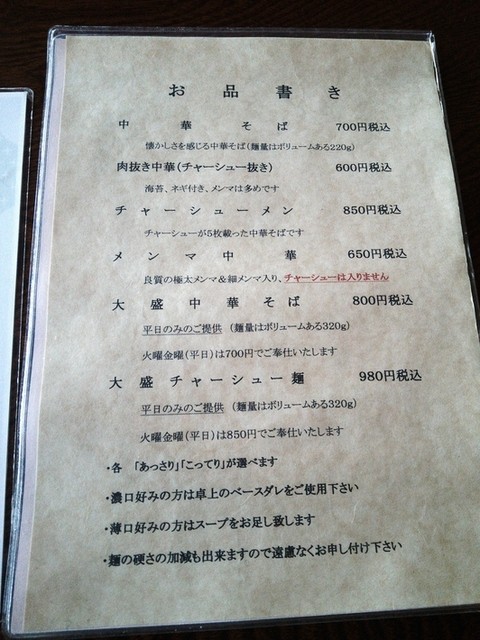 お品書き
中華そば 700円税込
懐かしさを感じる中華そば(麺量はボリュームある220g)
肉抜き中華(チャーシュー抜き) 600円税込
海苔、ネギ付き、メンマは多めです
チャーシューメン 850円税込
チャーシューが5枚載った中華そばです
メンマ中華 650円税込
良質の極太メンマ&細メンマ入り、チャーシューは入りません
大盛中華そば 800円税込
平日のみのご提供 (麺量はボリュームある320g)
火曜金曜(平日)は700円でご奉仕いたします
大盛チャーシュー麺 980円税込
平日のみのご提供 (麺量はボリュームある320g)
火曜金曜(平日)は850円でご奉仕いたします
・各 「あっさり」「こってり」が選べます
・濃口好みの方は卓上のベースダレをご使用下さい
・薄口好みの方はスープをお足し致します
・麺の硬さの加減も出来ますので遠慮なくお申し付け下さい